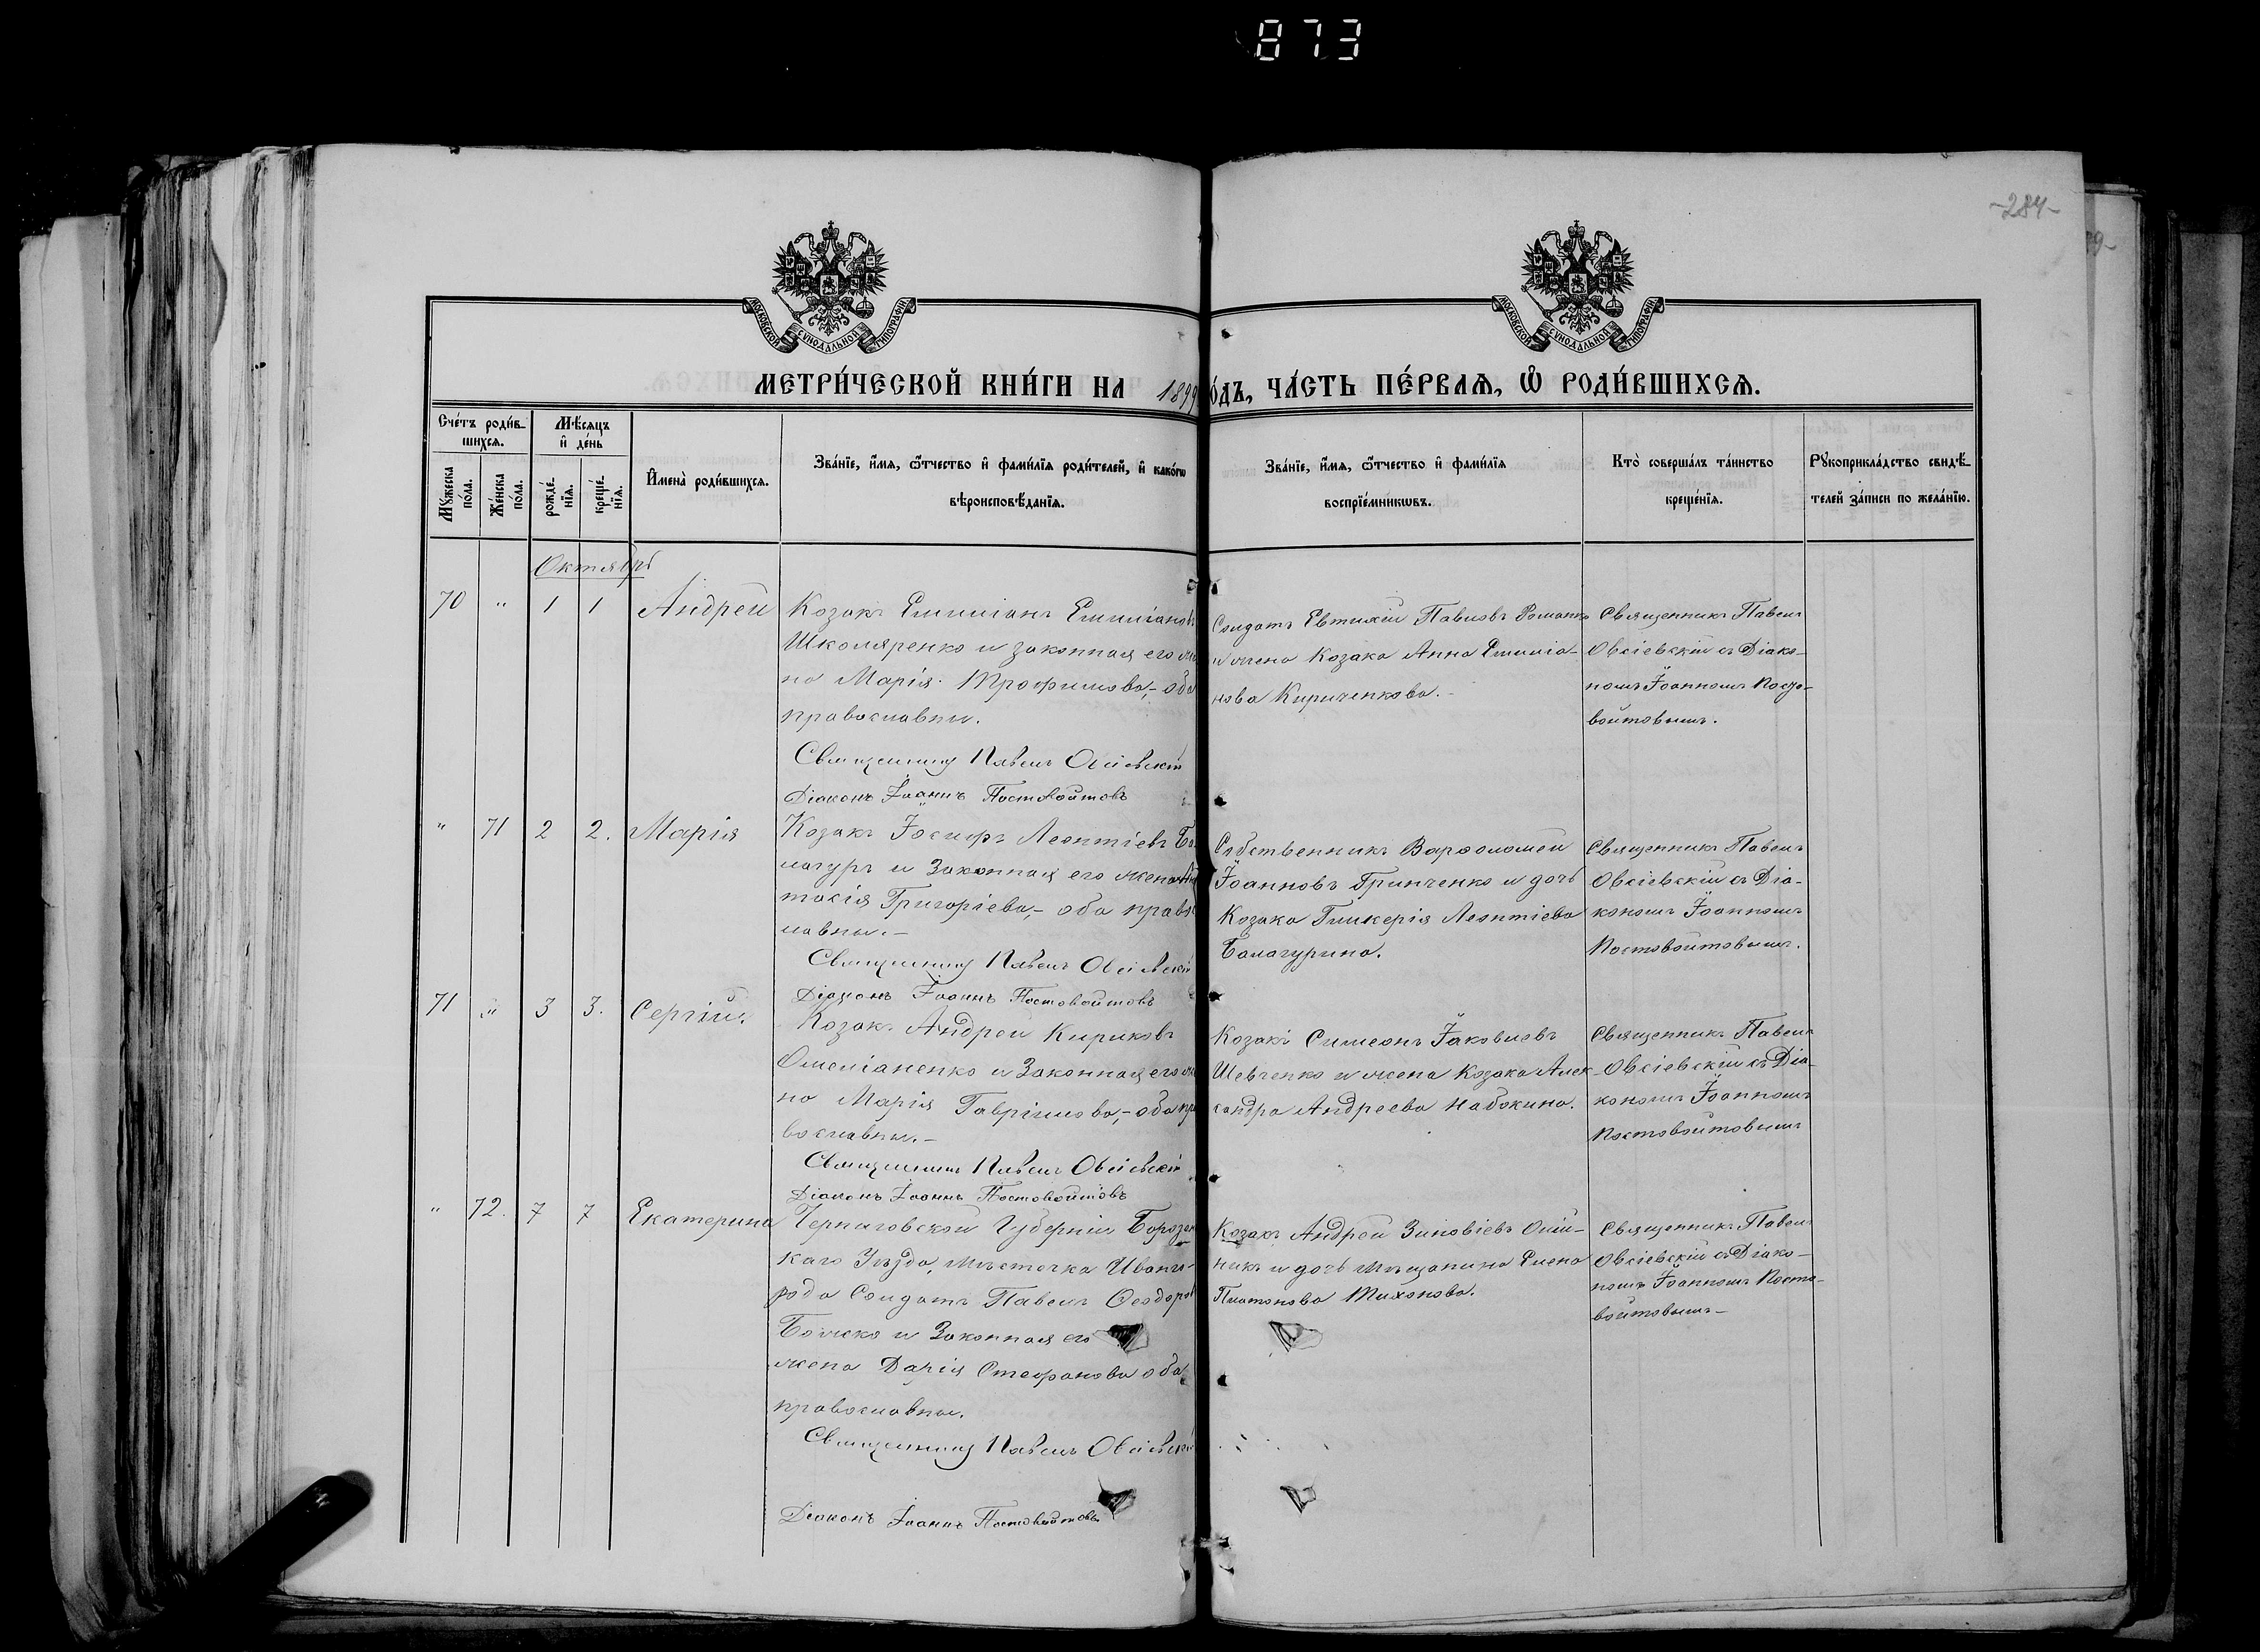 873
-284-
МОСКОВСКОЙ СѴНОДАЛЬНОЙ ТИПОГРАФІИ
МОСКОВСКОЙ СѴНОДАЛЬНОЙ ТИПОГРАФІИ
МЕТРИ́ЧЕСКОЙ КНИ́ГИ НА 1899
О́ДЪ, ЧА́СТЬ ПЕ́РВАЯ, Ѽ РОДИ́ВШИХСЯ.
Сче́тъ роди́в-
шихся.
Мꙋжеска по́ла.
Же́нска по́ла.
Мѣ́сяцъ
и҆ де́нь
рожде́-
нїя.
креще́-
нїя.
И҆мена̀ роди́вшихся.
Зва́нїе, и҆́мя, ѻ҆́тчество и҆ фами́лїя роди́телей, и҆ како́гѡ
вѣроисповѣ́данїя.
Зва́нїе, и҆́мя, ѻ҆́тчество и҆ фами́лїя
воспрїе́мникѡвъ.
Кто̀ соверша́лъ та́инство
креще́нїя.
Рꙋкоприкла́дство свидѣ́-
телей за́писи по жела́нїю.
Октябрь
70 " 1 1 Андрей
Козакъ Емиліанъ Емиліановъ
Школяренко и законная его же
на Марія Трофимова,- оба
православны.
Священникъ Павелъ Овсіевскій
Діаконъ Іоаннъ Постовойтовъ
Солдатъ Евтихій Павловъ Романко
и жена Козака Анна Емилiа-
нова Кириченкова.
Священникъ Павелъ
Овсіевскій съ Діако-
номъ Іоанномъ Посто-
войтовымъ.
" 71 2 2. Марія
Козакъ Іосифъ Леонтіевъ Ба
лагуръ и Законная его жена
тасія Григоріева,- оба право
лавны.-
Священникъ Павелъ Овсіевскій
Діаконъ Іоаннъ Постовойтовъ
Собственникъ Варфоломей
Іоанновъ Гринченко и дочь
Козака Гликерія Леонтіева
Балагурина.
Священникъ Павелъ
Овсіевскій съ Діа-
кономъ Іоанномъ
Постовойтовымъ.
71 " 3 3. Сергій.
Козакъ Андрей Кириковъ
Омеліаненко и Законная его же
на Марія Гавріилова,- оба пра
вославны.-
Священникъ Павелъ Овсіевскій
Діаконъ Іоаннъ Постовойтовъ
Козакъ Симеонъ Іаковлевъ
Шевченко и жена Козака Алек-
сандра Андреева Набокина.
Священникъ Павелъ
Овсіевскій съ Діа-
кономъ Іоанномъ
Постовойтовымъ
" 72. 7 7 Екатерина
Черниговской Губерніи Борзен
каго Уѣзда, мѣстечка Иванго-
рода Солдатъ Павелъ Феодоров
Божко и Законная его
жена Дарія Стефанова оба
православны.
Священникъ Павелъ Овсіевскій
Діаконъ Іоаннъ Постовойтовъ
Козакъ Андрей Зиновіевъ Олій-
никъ и дочь мѣщанина Елена
Платонова Тихонова.
Священникъ Павелъ
Овсіевскій съ Діако-
номъ Іоанномъ Посто-
войтовымъ-